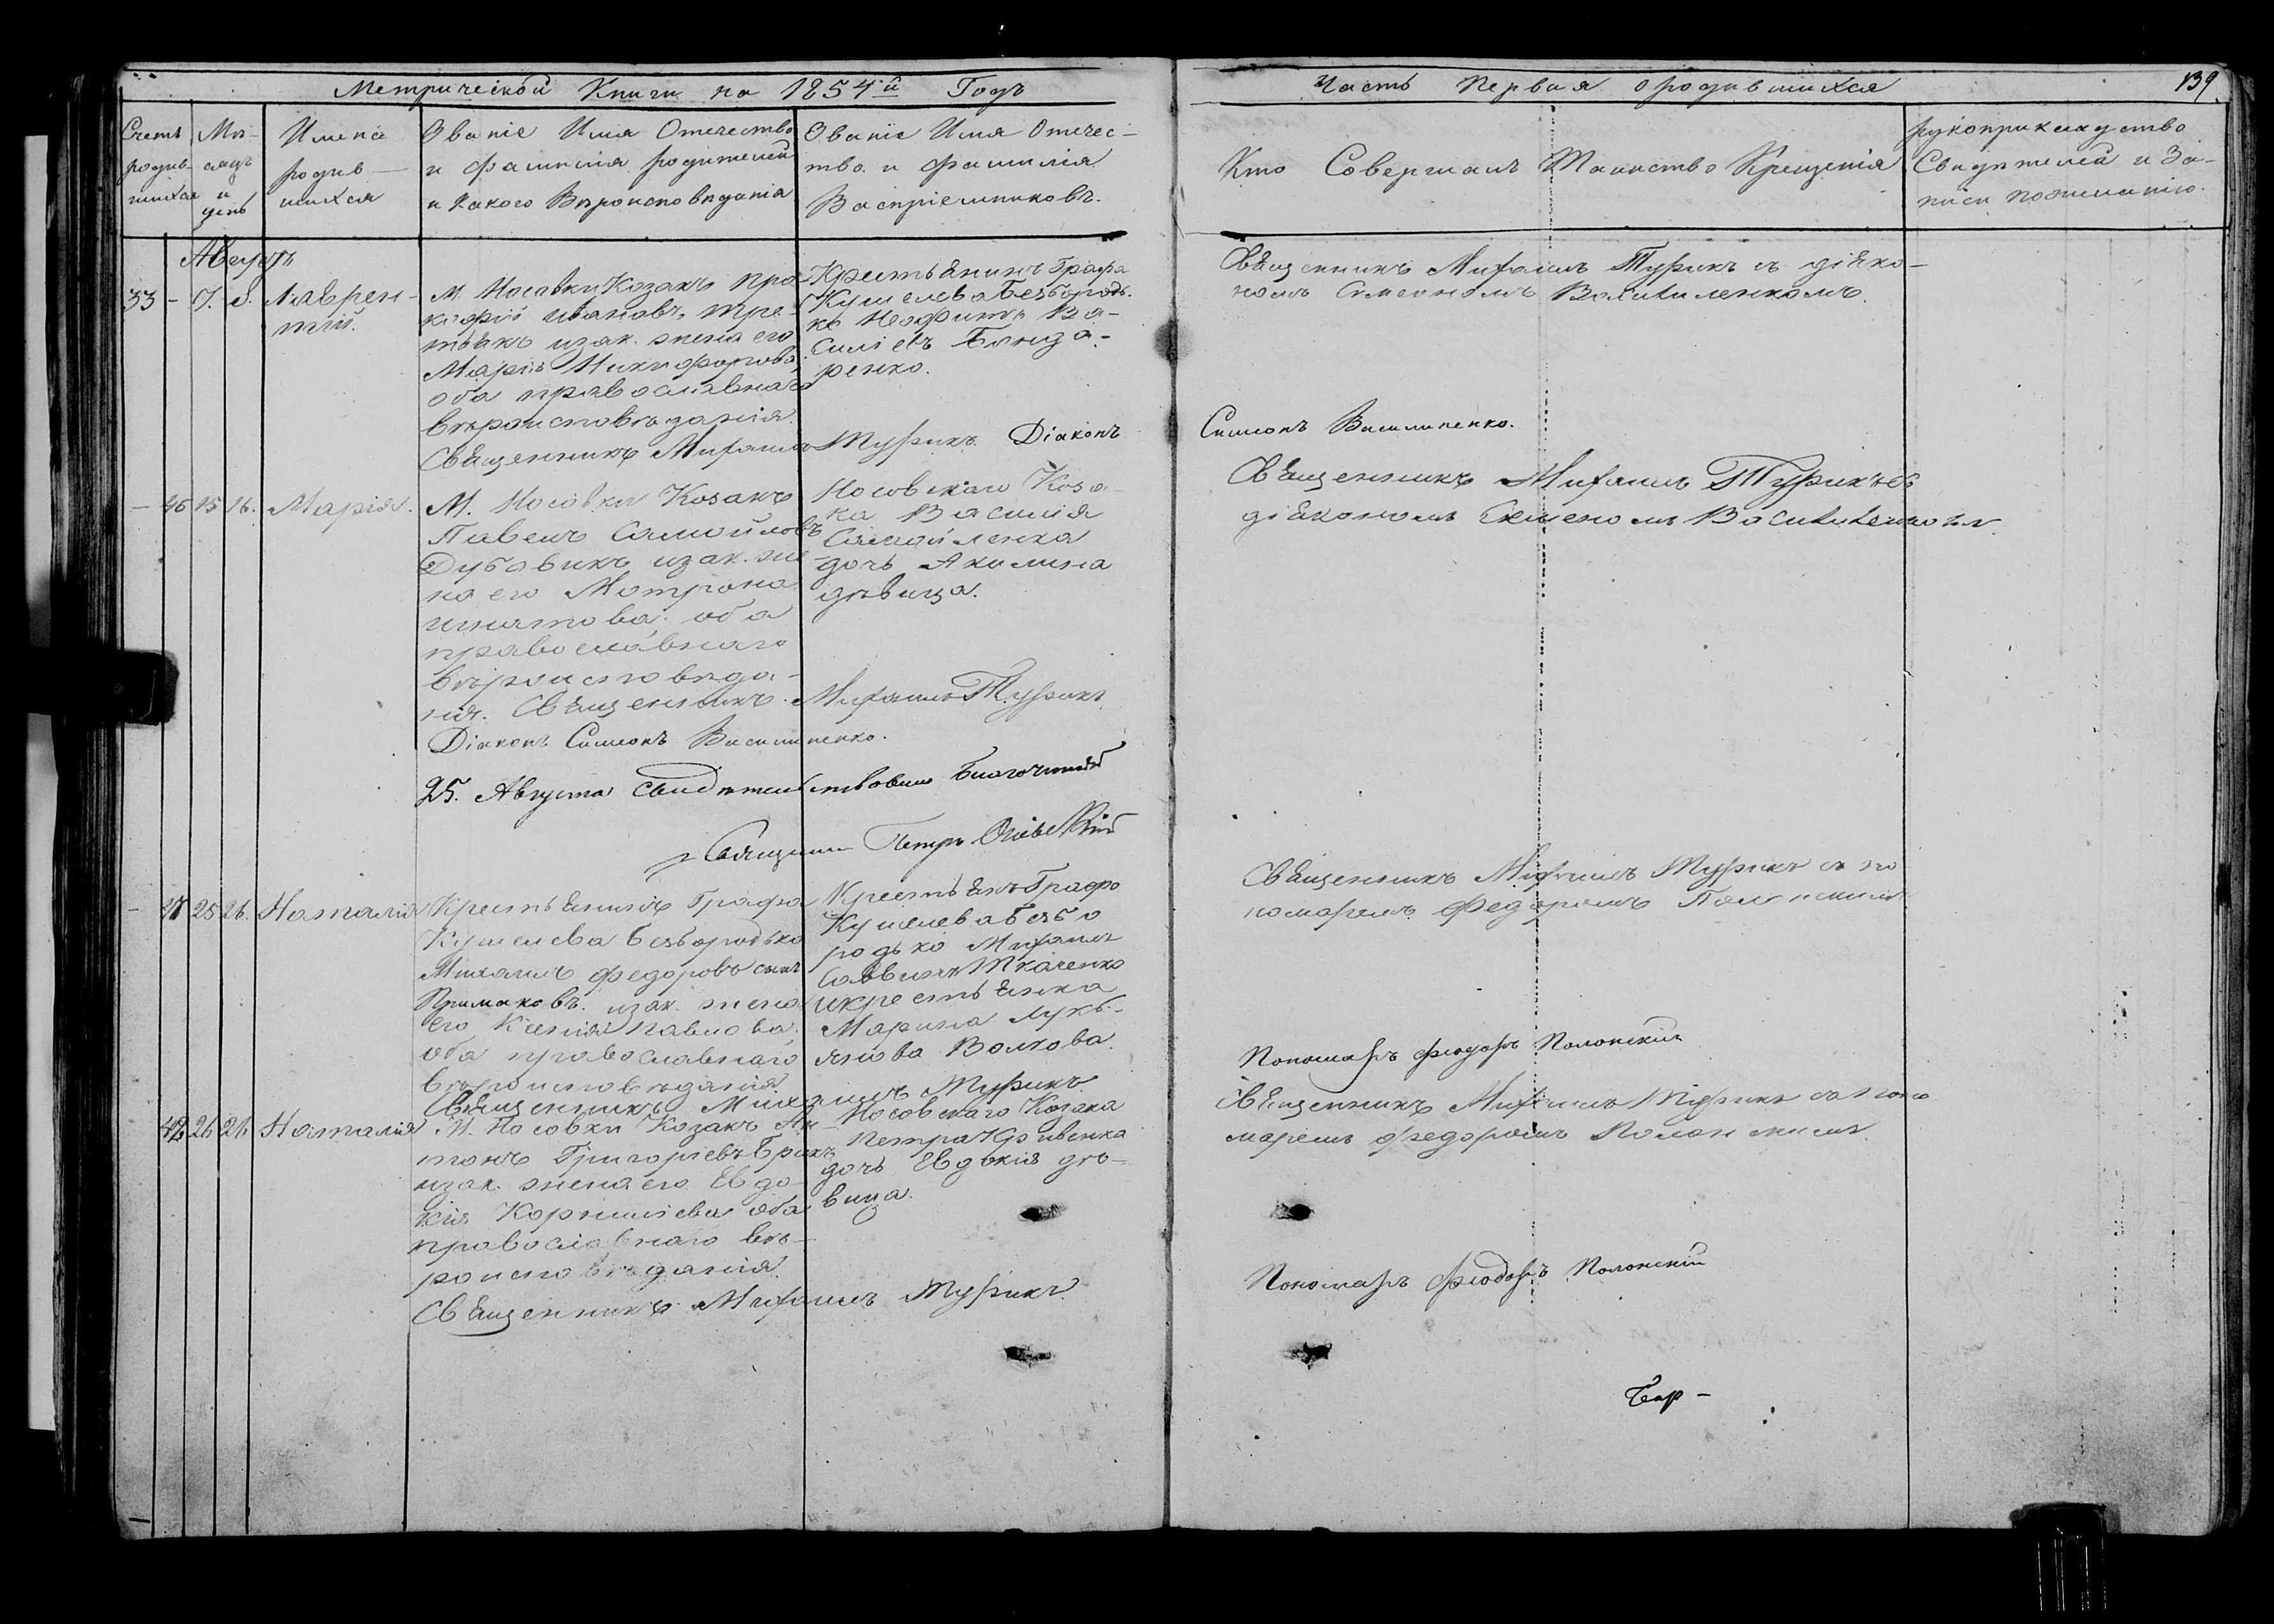 Метрической Книги на 1854й Годъ
Счетъ родив- шихся
Мѣ- сяцъ и день
Имена родив- шихся
Званіе Имя Отечество
и Фамилія родителей
и какого Вѣроисповѣданія
Званіе Имя Отечес-
тво и Фамилія
Воспріемниковъ.
Августъ
33 - 7. 8. Лаврен-
тій.
М. Носовки Козакъ Про-
кофій Ивановъ Тре-
тьякъ изак. жена его
Марія Никифорова,
оба православнаго
вѣроисповѣданія.
Крестьянинъ Графа
Кушелева Безбородь-
ко Неофитъ Ва-
силіевъ Бонда-
ренко.
Священникъ Михаилъ Турикъ Діаконъ
- 46 15 16. Марія.
М. Носовки Козакъ
Павелъ Самойловъ
Дубовикъ изак. же-
на его Мотрона
Игнатова; оба
православнаго
вѣроисповѣда-
нія. Священникъ Михаилъ Турикъ
Носовскаго Коза-
ка Василія
Самойленка
дочь Акилина
дѣвица.
Діаконъ Симеонъ Василиненко.
25. Августа свидѣтельствовалъ Благочинный
Священникъ Петръ
- 27 25 26. Наталія
Крестьянинъ Графа
Кушелева Безбородько
Михаилъ Федоровъ сынъ
Примаковъ. изак. жена
его Ксенія Павлова
оба православнаго
вѣроисповѣданія.
Крестьянъ Графа
Кушелева Безбо
родько Михаилъ
Саввинъ Ткаченко
икрестьянка
Марина Лукь-
янова Волкова.
Священникъ Михаилъ Турикъ
42 26 27. Наталія
М. Носовки Козакъ Ан-
тонъ Григоріевъ
изак. жена его Евдо-
кія Корниліева оба
православнаго вѣ-
роисповѣданія.
Носовскаго Козака
Петра Кривенка
дочь Евдокія дѣ-
вица.
Священникъ Михаилъ Турикъ
Часть Первая ородившихся
139.
Кто Совершалъ Таинство Крещенія
рукоприкладство
Свидѣтелей и За-
писи пожеланію.
Священникъ Михаилъ Турикъ съ діако-
номъ Симеономъ Василиненкомъ.
Симеонъ Василиненко.
Священникъ Михаилъ Турикъ съ
діакономъ Симеономъ Василиненкомъ.
Священникъ Михаилъ Турикъ съ по
номаремъ Федоромъ Полонскимъ
Пономарь Фіодоръ Полонскій
Священникъ Михаилъ Турикъ съ поно
маремъ Федоромъ Полонскимъ.
Пономарь Фіодоръ Полонскій